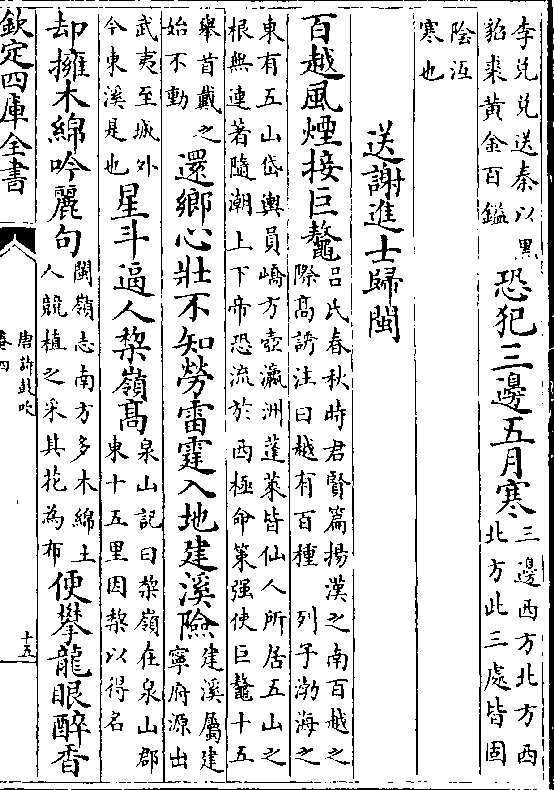 李兌兌送秦以黑
貂裘黃金百鎰
恐犯三邊五月寒
三邊西方北方西
北方此三處皆固
陰沍
寒也
送謝進士歸閩
百越風煙接巨鼇
呂氏春秋時君賢篇揚漢之南百越之
際高誘注曰越有百種 列子渤海之
東有五山岱輿員嶠方壺瀛洲蓬萊皆仙人所居五山之
根無連著隨潮上下帝恐流於西極命策强使巨鼇十五
舉首戴之
始不動
還鄉心壯不知勞雷霆入地建溪險
建溪屬建
寧府源出
武夷至城外
今東溪是也
星斗逼人棃嶺高
泉山記曰棃嶺在泉山郡
東十五里因棃以得名
却擁木綿吟麗句
閩嶺志南方多木綿土
人競植之采其花為布
便攀龍眼醉香
欽定四庫全書
唐詩鼓吹
卷四
十五